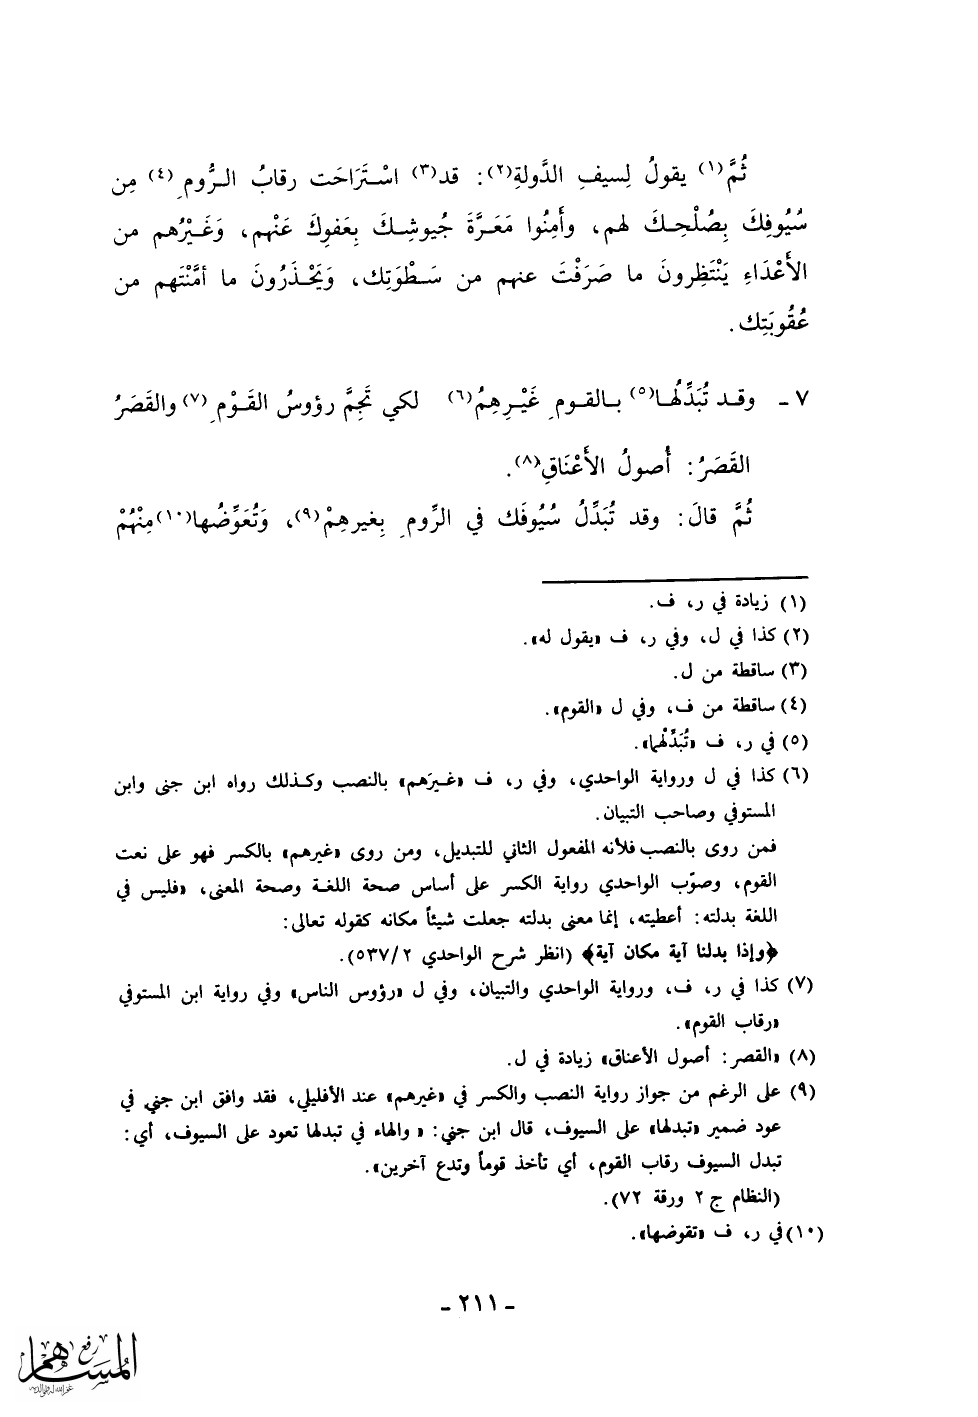 ثُمَّ(١) يقولُ لِسيفِ الدَّولةِ(٢): قد(٣) اسْتَرَاحَت رقابُ الرُّومِ(٤) مِن
سُيُوفِكَ بِصُلْحِكَ لهم، وأَمِنُوا مَعَرَّةَ جُيوشِكَ بِعَفوِكَ عَنْهم، وَغَيْرُهم من
الأَعْدَاءِ يَنْتَظِرونَ ما صَرَفْتَ عنهم من سَطْوَتِك، وَيَحْذَرُونَ ما أمَّنْتَهم من
عُقُوبَتِك.
٧ - وقد تُبَدِّلُها(٥) بالقومِ غَيْرِهِمُ(٦) لكي تَجِمَّ رؤوسُ القَوْمِ(٧) والقَصَرُ
القَصَرُ: أُصولُ الأَعْنَاقِ(٨).
ثُمَّ قالَ: وقد تُبَدِّلُ سُيُوفَك في الرِّومِ بِغيرهِمْ(٩)، وَتُعَوِّضُها(١٠) مِنْهُمْ
(١) زيادة في ر، ف.
(٢) كذا في ل، وفي ر، ف «يقول له».
(٣) ساقطة من ل.
(٤) ساقطة من ف، وفي ل «القوم».
(٥) في ر، ف «تُبَدِّلْهما».
(٦) كذا في ل ورواية الواحدي، وفي ر، ف «غيرَهم» بالنصب وكذلك رواه ابن جنى وابن
المستوفي وصاحب التبيان.
فمن روى بالنصب فلأنه المفعول الثاني للتبديل، ومن روى «غيرهم» بالكسر فهو على نعت
القوم، وصوّب الواحدي رواية الكسر على أساس صحة اللغة وصحة المعنى، «فليس في
اللغة بدلته: أعطيته، إنما معنى بدلته جعلت شيئاً مكانه كقوله تعالى:
﴿وإذا بدلنا آية مكان آية﴾ (انظر شرح الواحدي ٥٣٧/٢).
(٧) كذا في ر، ف، ورواية الواحدي والتبيان، وفي ل «رؤوس الناس» وفي رواية ابن المستوفي
«رقاب القوم».
(٨) «القصر: أصول الأعناق» زيادة في ل.
(٩) على الرغم من جواز رواية النصب والكسر في «غيرهم» عند الأفليلي، فقد وافق ابن جني في
عود ضمير «تبدلها» على السيوف، قال ابن جني: « والهاء في تبدلها تعود على السيوف، أي:
تبدل السيوف رقاب القوم، أي تأخذ قوماً وتدع آخرين».
(النظام ج ٢ ورقة ٧٢).
(١٠) في ر، ف «تقوضها».
- ٢١١ -
رفع
المساهم